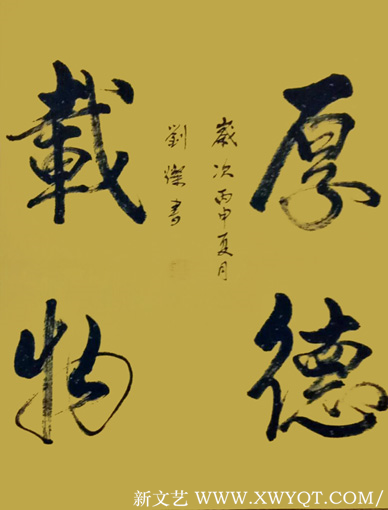 厚德
載物
歲次丙申夏月
劉 書
新文艺 WWW.XWYQT.COM/